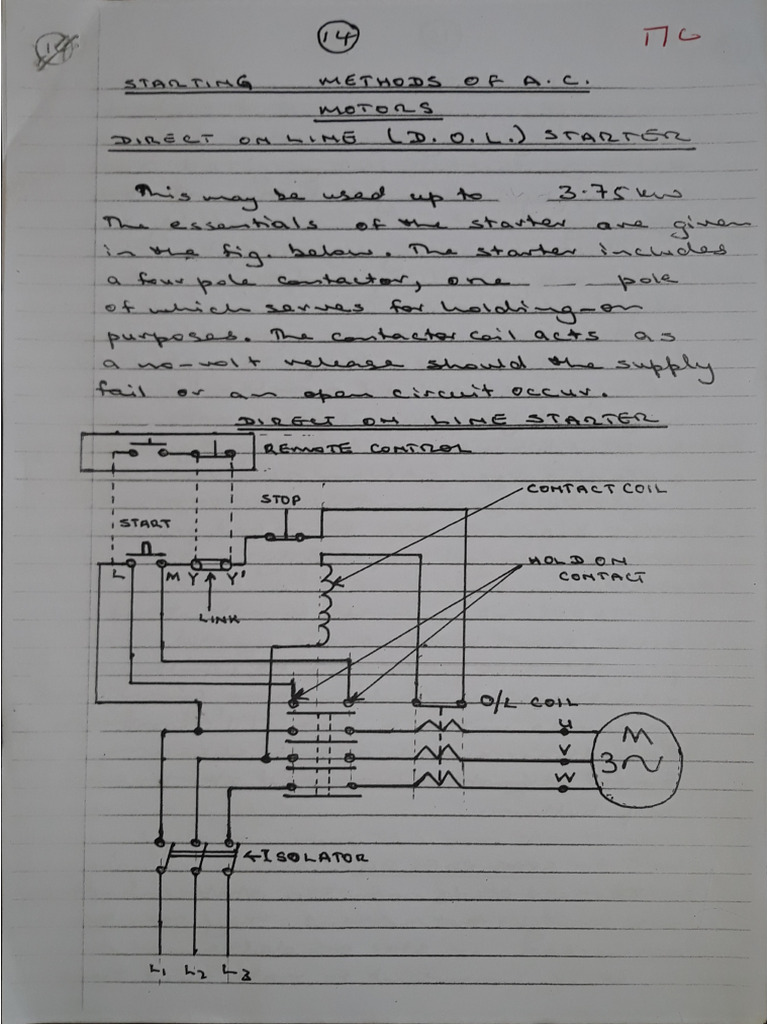 14
14
STARTING METHODS OF A.C.
MOTORS
DIRECT ON LINE (D.O.L.) STARTER
This may be used up to 3.75 kw
The essentials of the starter are given
in the fig. below. The starter includes
a four pole contactor, one pole
of which serves for holding-on
purposes. The contactor coil acts as
a no-volt release should the supply
fail or an open circuit occur.
DIRECT ON LINE STARTER
REMOTE CONTROL
CONTACT COIL
STOP
START
HOLD ON
CONTACT
L M Y Y'
LINK
O/L COIL
U
V
W
M
3~
ISOLATOR
L1 L2 L3